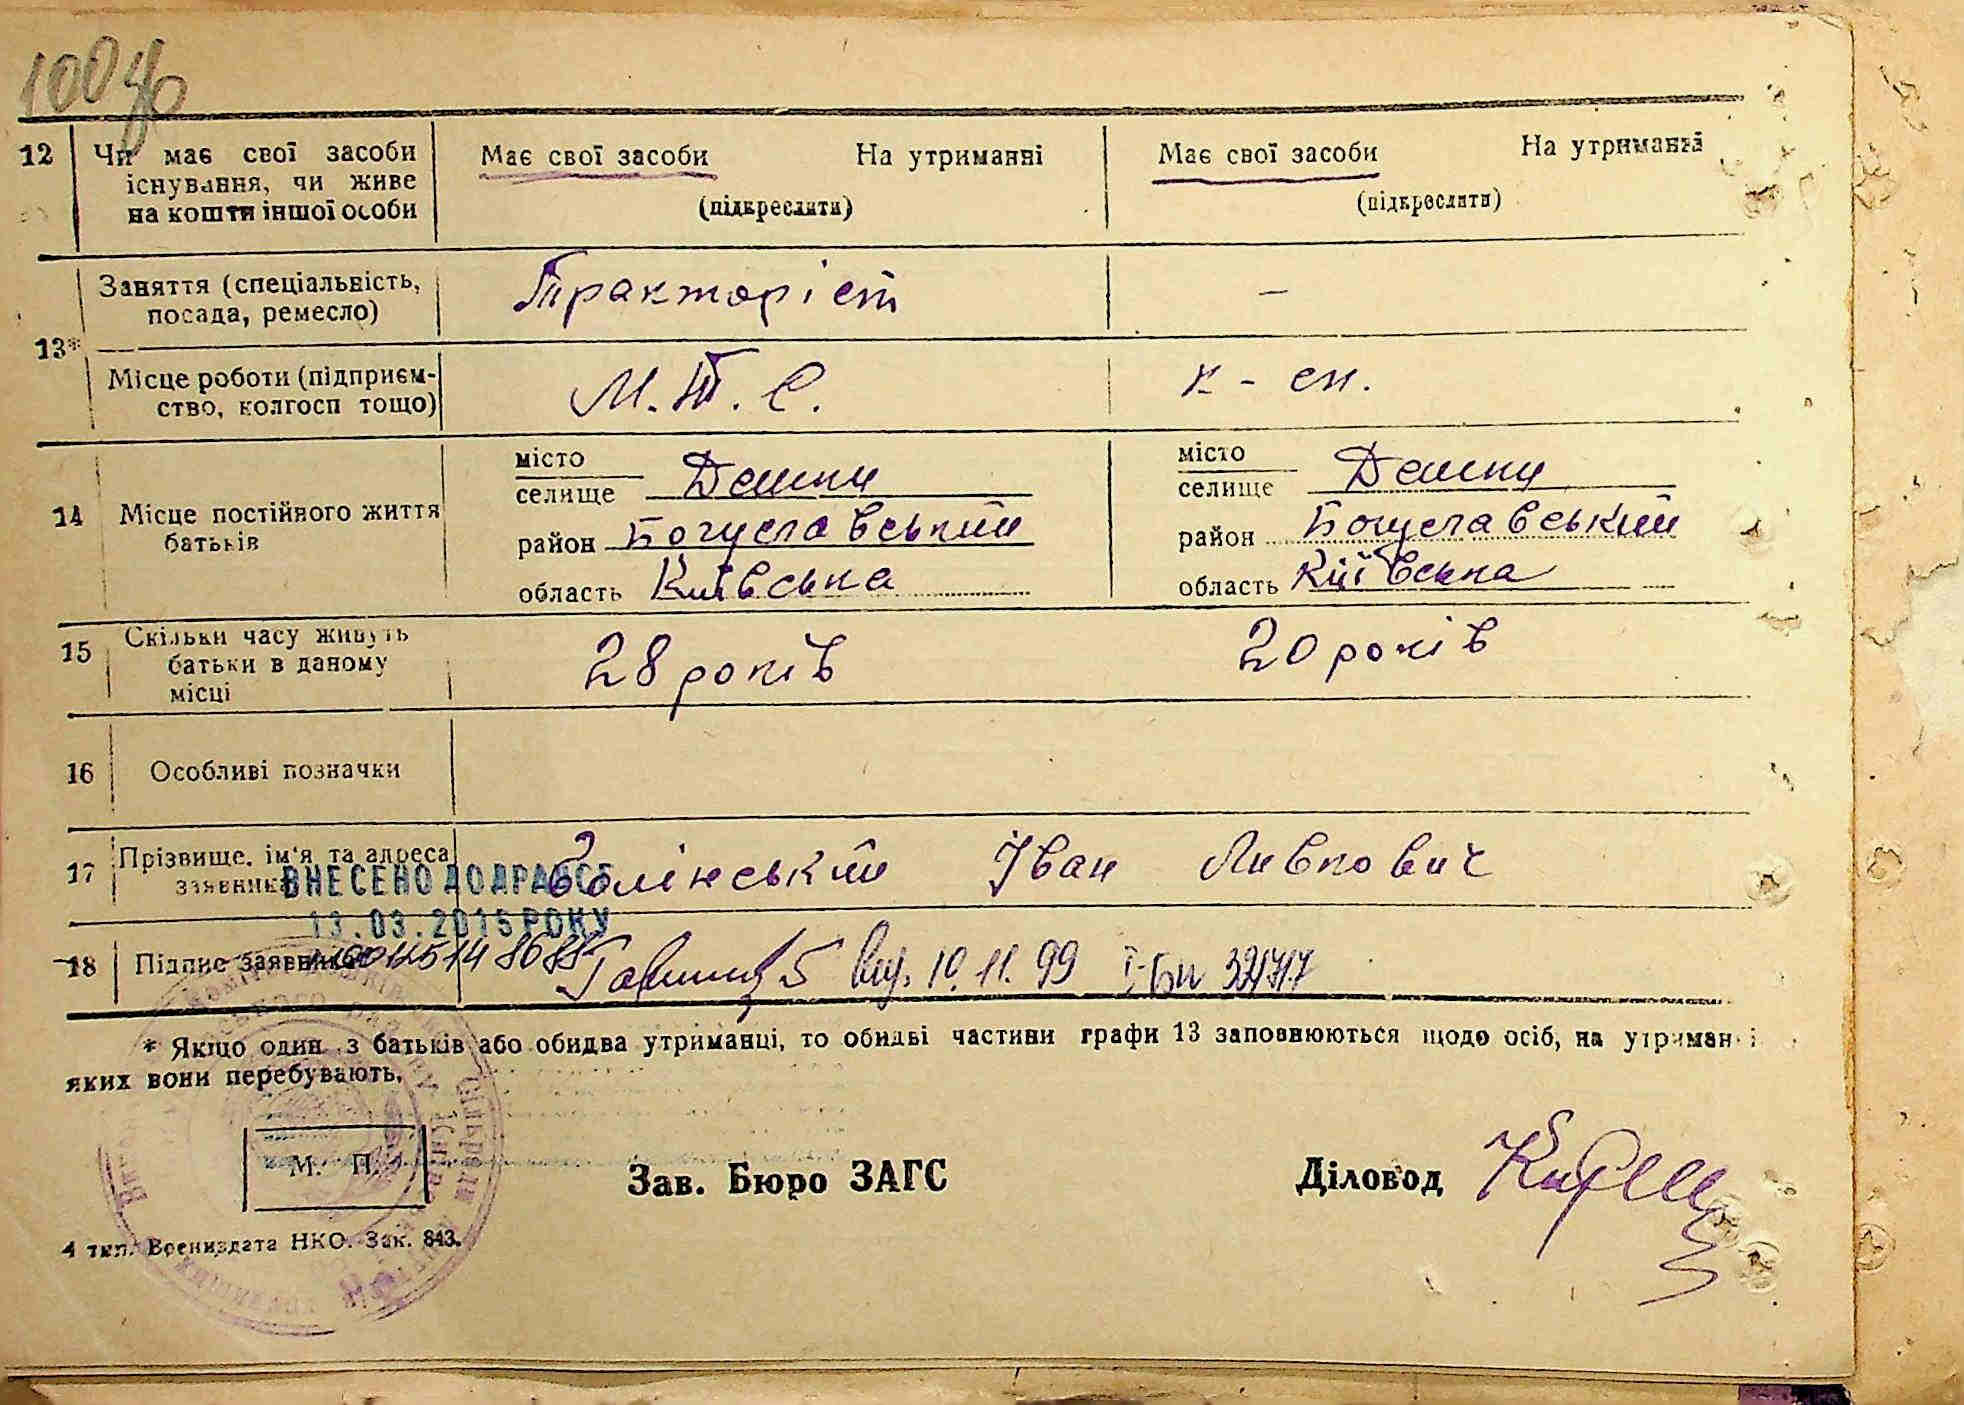 100
12 Чи має свої засоби існування, чи живе на кошти іншої особи
Має свої засоби На утриманні
(підкреслити)
Має свої засоби На утриманні
(підкреслити)
13*
Заняття (спеціальність, посада, ремесло)
Тракторіст
–
Місце роботи (підприєм-
ство, колгосп тощо)
М.Т.С.
к-сп.
14 Місце постійного життя батьків
місто
селище Дешки
район Богуславський
область Київська
місто
селище Дешки
район Богуславський
область Київська
15 Скільки часу живуть батьки в даному місці
28 років
20 років
16 Особливі позначки
17 Прізвище, ім'я та адреса заявника
Іван
ВНЕСЕНО ДО ДРАЦСГ
13.03.2015 РОКУ
18 Підпис заявника
вид. 10.11.99 І-БК
* Якщо один з батьків або обидва утриманці, то обидві частини графи 13 заповнюються щодо осіб, на утриманні
яких вони перебувають.
М. П.
Зав. Бюро ЗАГС
Діловод
4 тип. Воениздата НКО. Зак. 843.